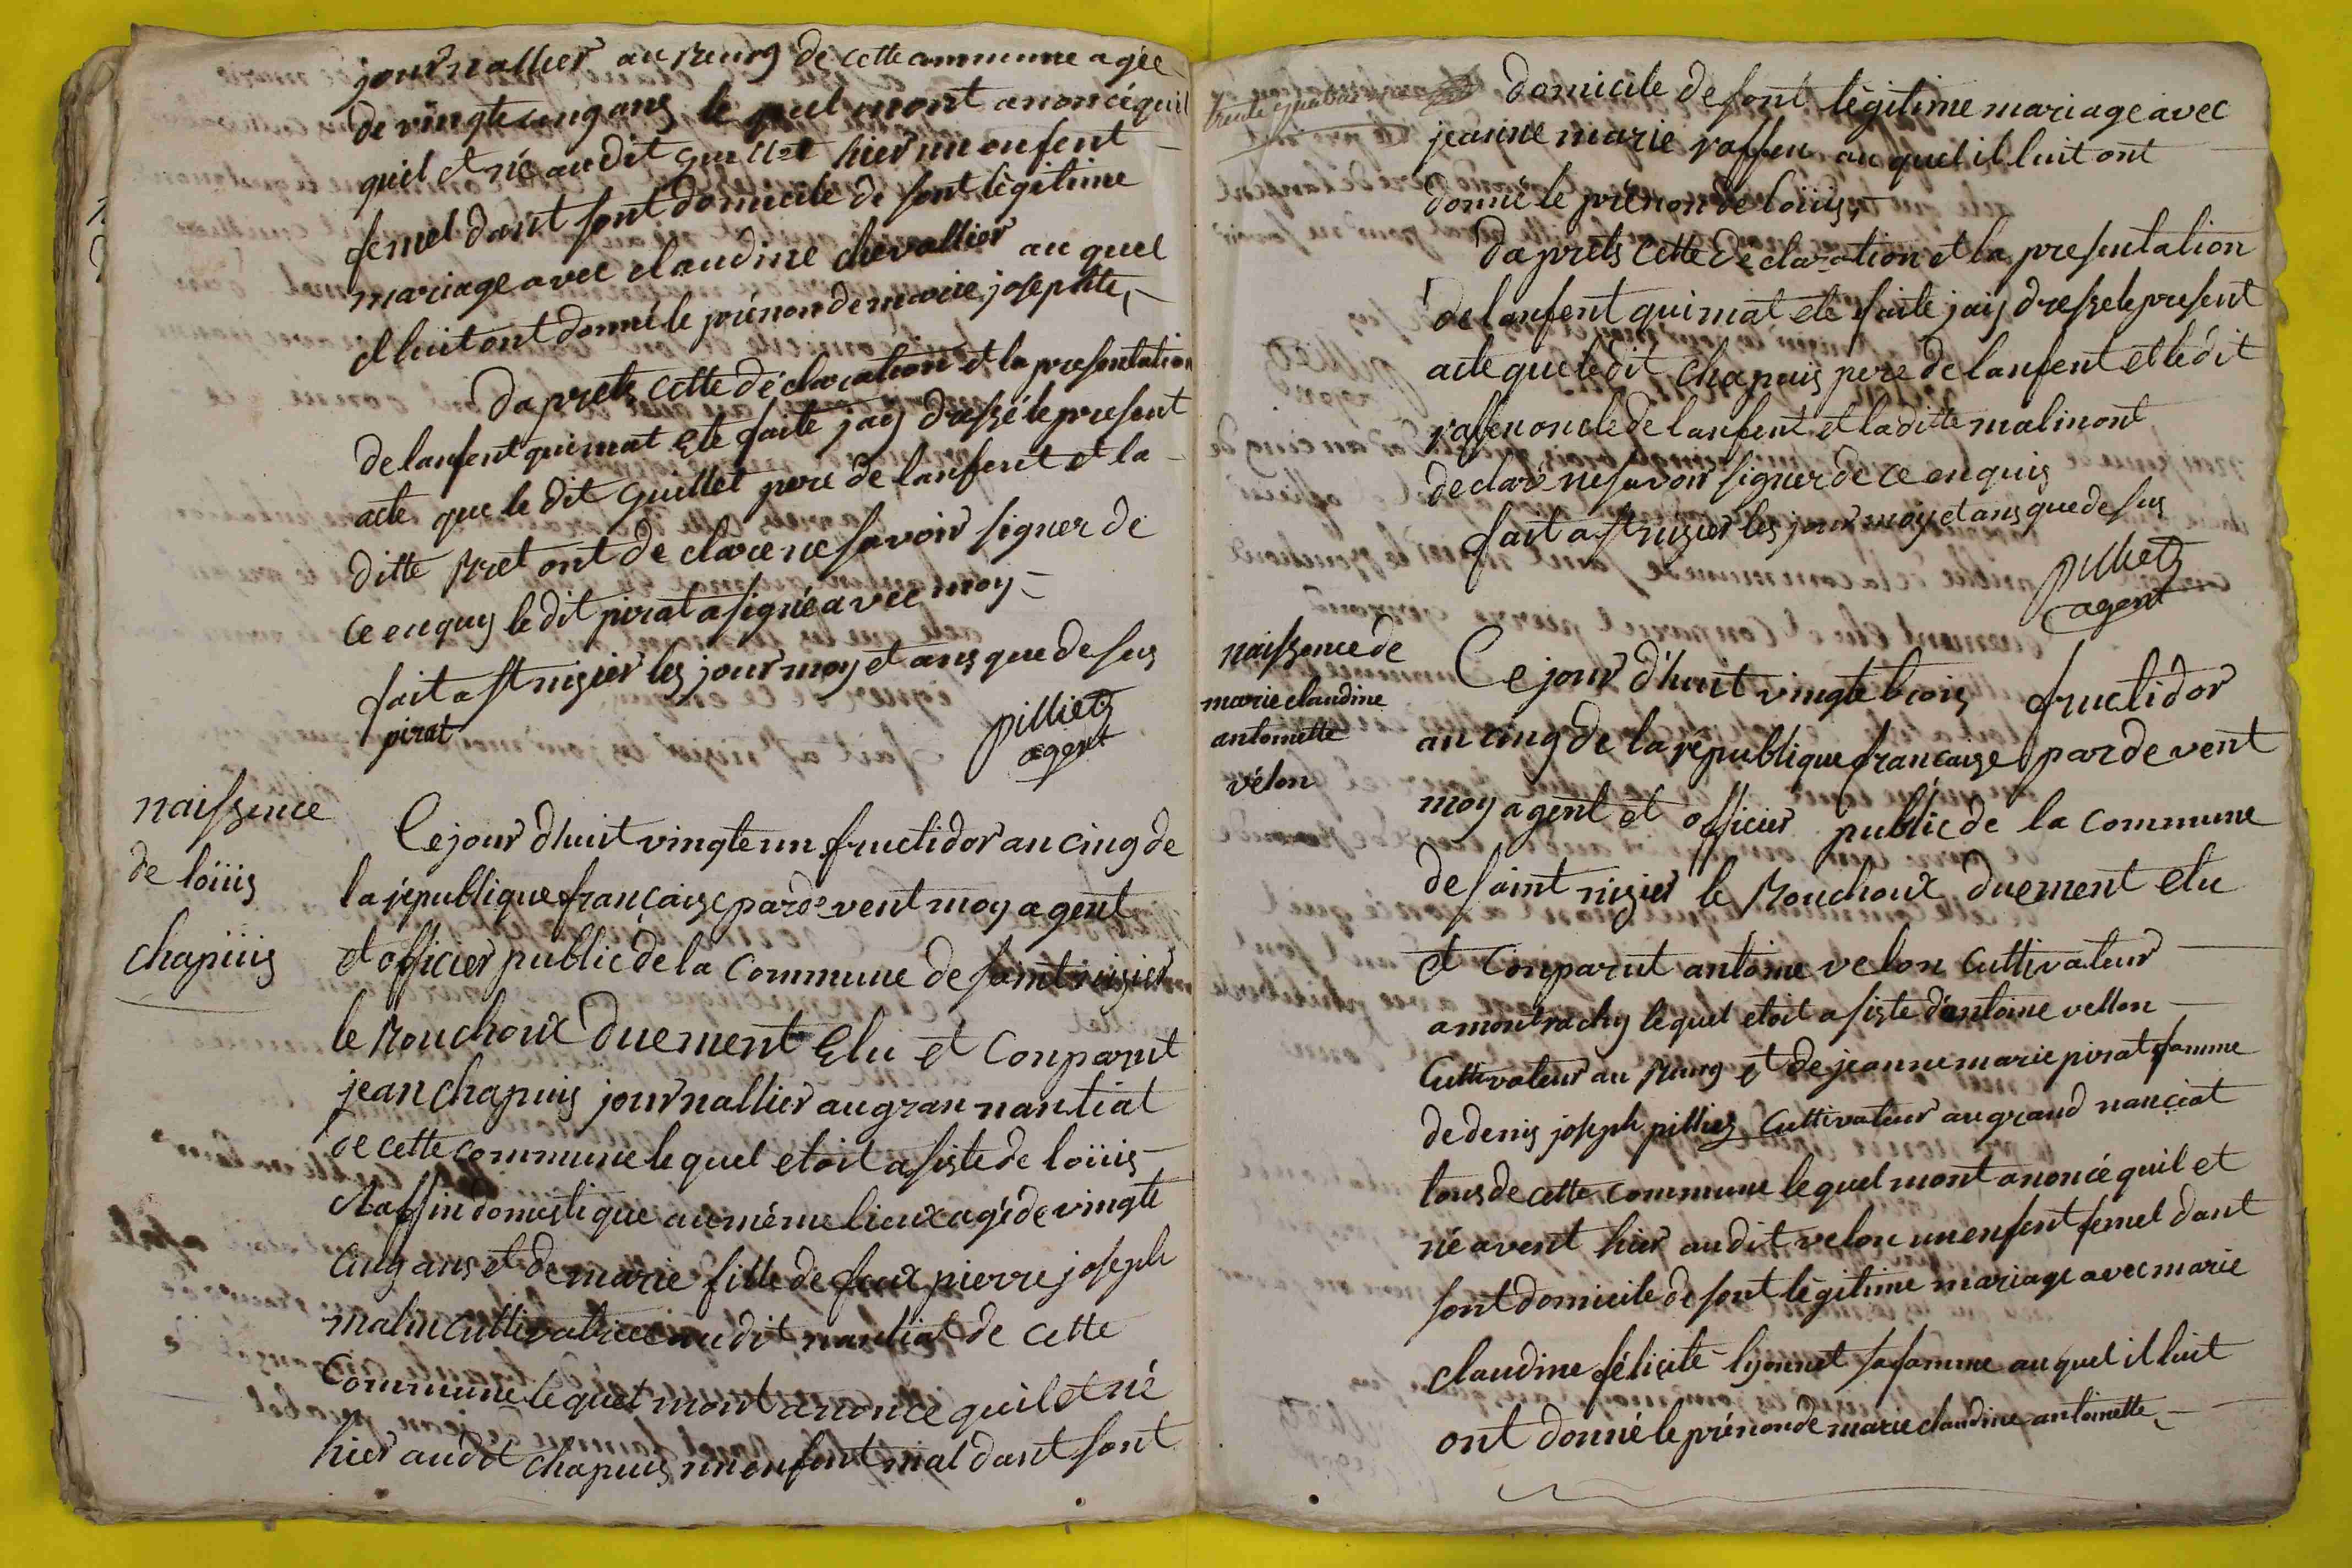 journallier au bourg de cette commune agée
de vingte cinq ans le quel mont anoncé quil
quil et né audit guillet hier un enfent
femel dant sont domicile de sont lègitime
mariage avec claudine chevallier au quel
il luit ont donné le prénon de marie josephte,
Daprets cette déclaration et la presentation
de lanfent qui mat ete faite jaÿ dressé le present
acte que le dit guillet pere de lanfent et la
ditte bret ont de claré ne savoir signer de
ce enquÿ le dit pirat a signé avec moy
fait a st nizier les jour moy et ans que de sus
pirat
pilliet
agent
naissence
de loïiis
chapüis
Ce jour d'huit vingte un fructidor an cinq de
la republique française par de vent moy agent
et officier public de la Commune de saint nizier
le Bouchoux duement Elu et Conparut
jean chapuis journallier au gran nantiat
de cette commune le quel etoit asiste de loïiis
Raffin domestique au même lieux agé de vingte
Cinq ans et de marie fille de feux pierre joseph
malin Cultivatrice audit nantiat de cette
Commune le quel mont anonce quil et né
hier audit chapuis un enfent mal dant sont
trente quatre
domicile de sont lègitime mariage avec
jeanne marie raffen au quel il luit ont
donné le prénon de loïiis,
Daprets cette declaration et la presentation
de lanfent qui mat ete faite jaij dresse le present
acte que le dit Chapuis pere de lanfent et le dit
raffen oncle de lanfent et la ditte malin ont
declaré ne savoir signer de ce enquis
fait a st nizier les jour moy et ans que de sus
pilliet
agent
naissence de
marie claudine
antoinette
vélon
Ce jour d'huit vingte trois fructidor
an cinq de la rèpublique française par de vent
moy agent et officier public de la Commune
de saint nizier le Bouchoux duement elu
et Conparut antoine velon Cultivateur
a montrachy le quel etoit asiste d'antoine vellon
Cultivateur au bourg et de jeanne marie pirat famme
de denis joseph pilliez Cultivateur au grand nanciat
tous de cette commune le quel mont anoncé quil et
né avent hier audit velon un enfent femel dant
sont domicile de sont lègitime mariage avec marie
claudine félicité lyonnet sa famme au quel il luit
ont donné le prénon de marie claudine antoinette,